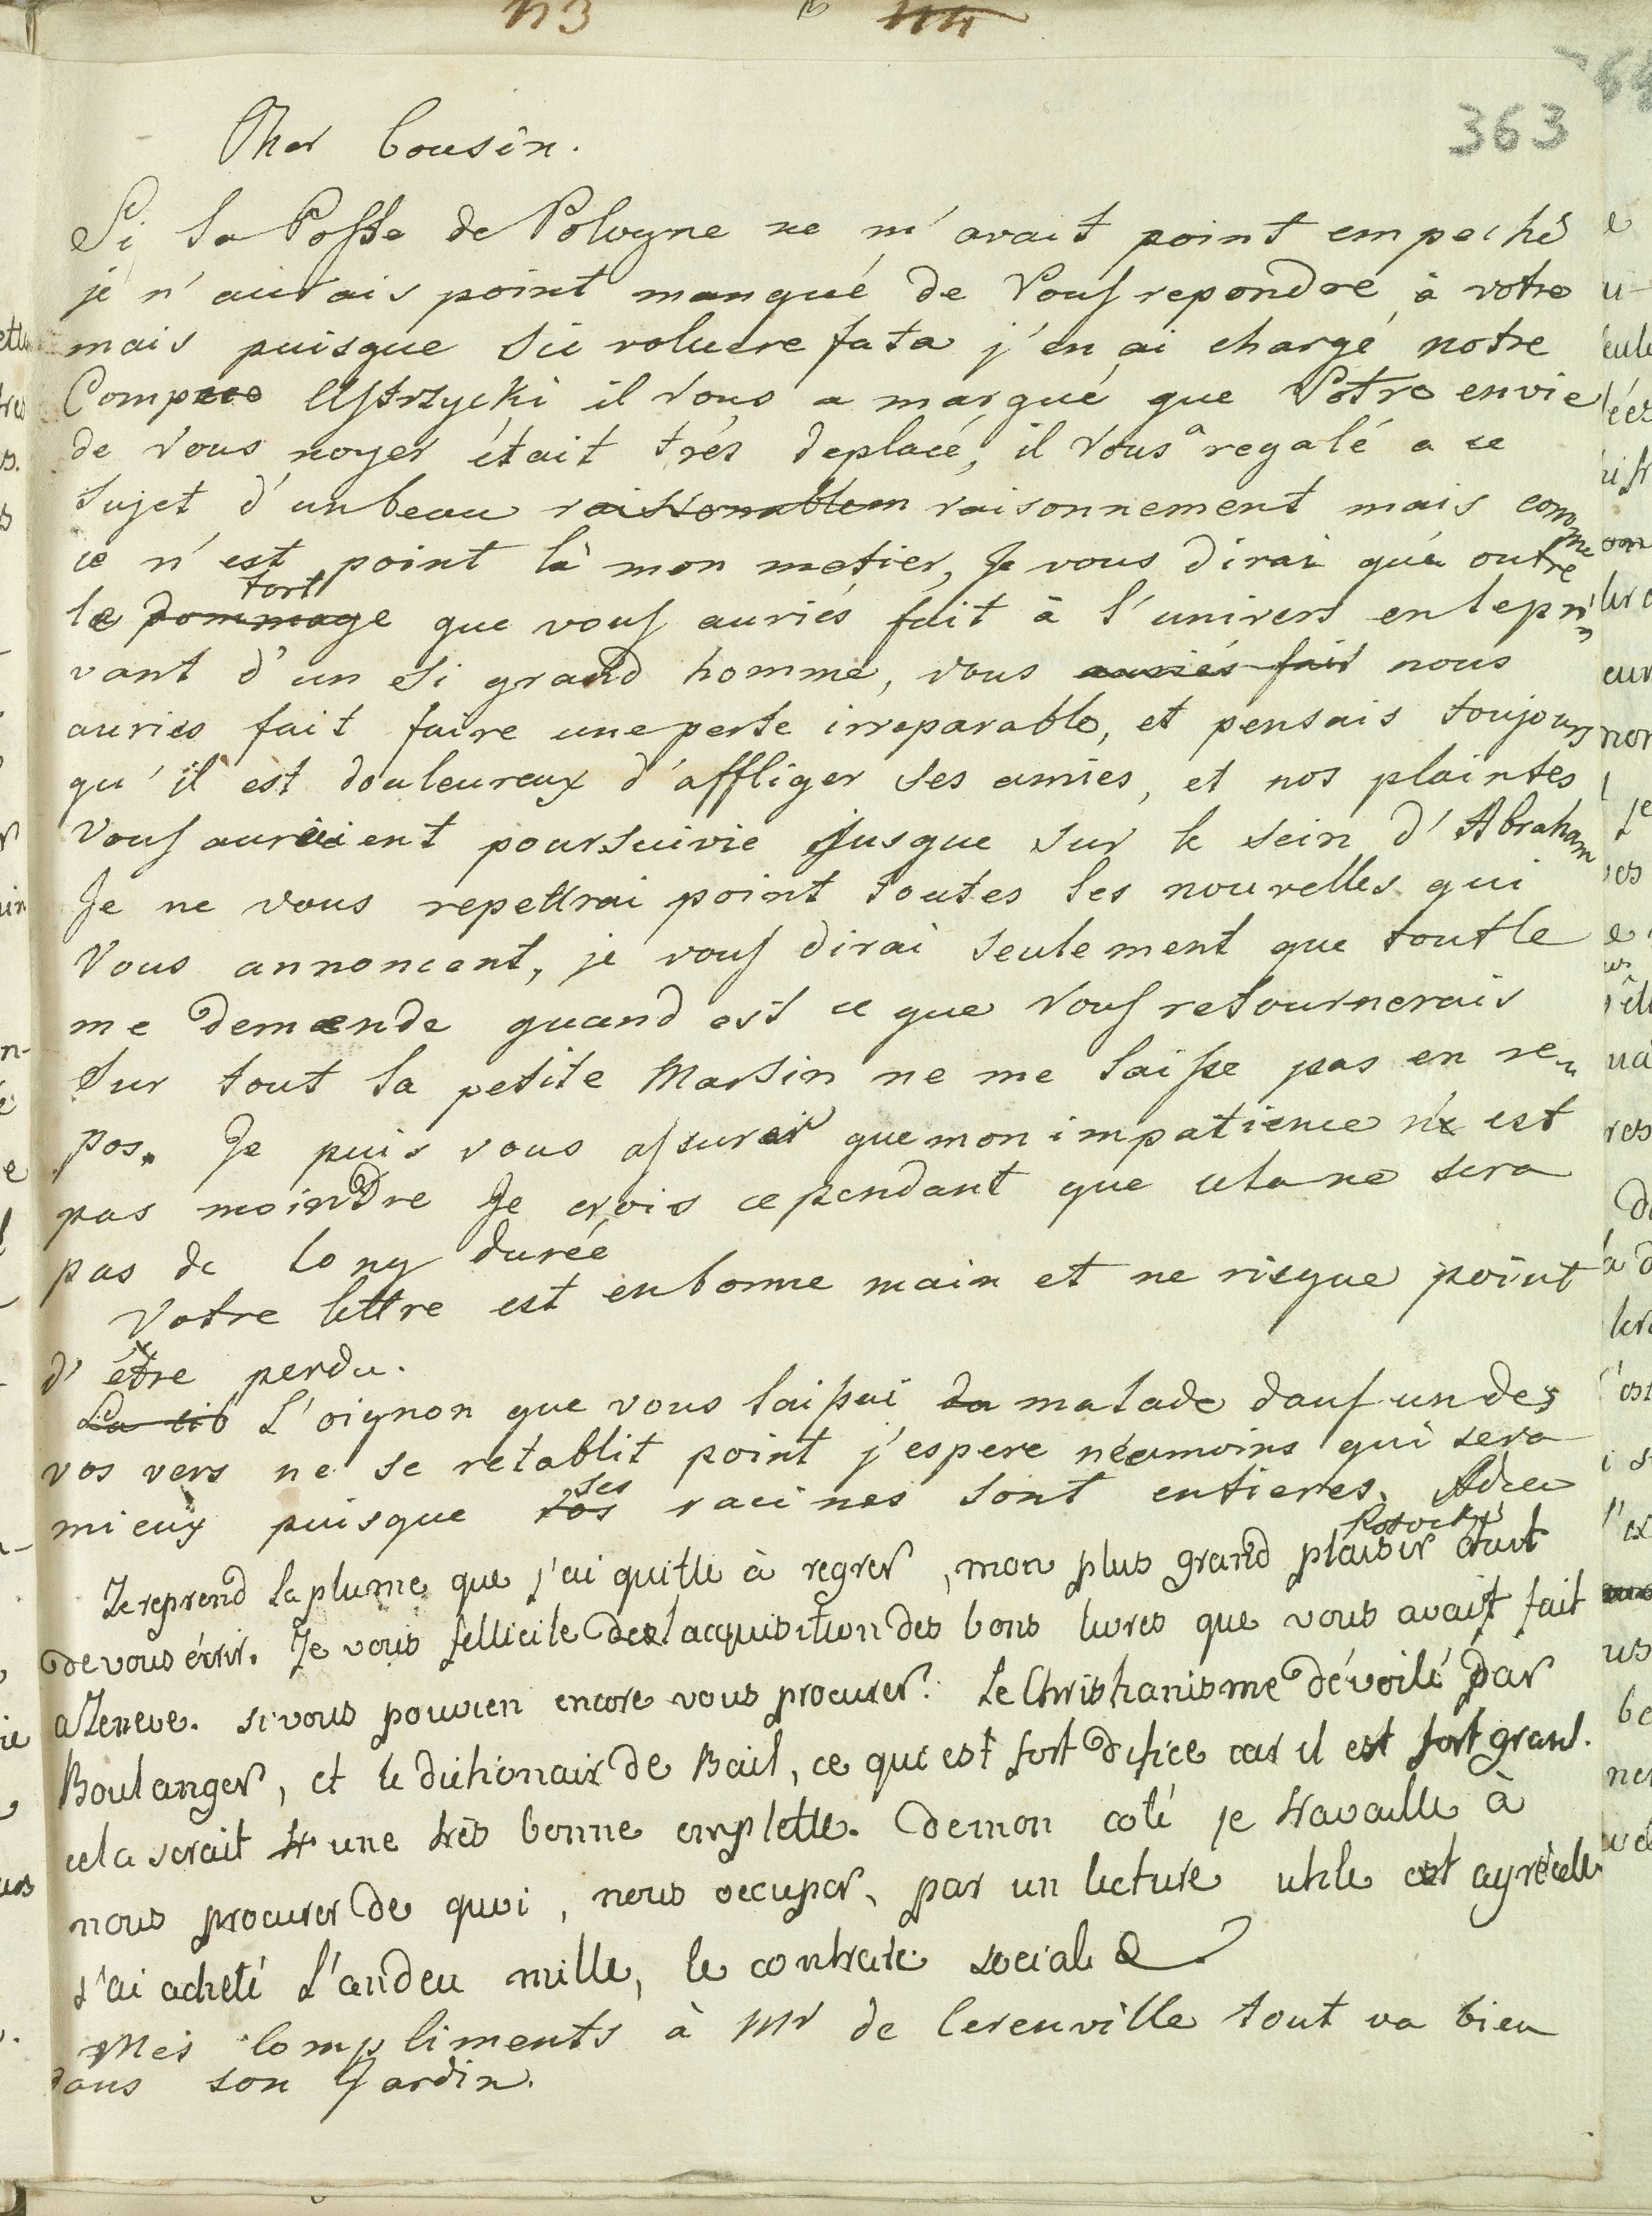 113 114
363
Cher Cousin.
Si la Poste de Pologne ne m'avait point empeché
je n'aurais point manqué de Vous repondre à votre
mais puisque sic voluere fata j'en ai chargé notre
Compere Ustrzycki il Vous a marqué que Votre envie
de vous noyer était trés deplacé, il Vous a regalé a ce
sujet d'un beau raissonablem raisonnement mais comme
ce n'est point là mon metier, Je vous dirai qu'à outre
tort
le dommage que vous auriés fait à l'univers en le pri=
vant d'un si grand homme, vous auriés fait nous
auries fait faire une perte irreparable, et pensais toujours
qu'il est douleureux d'affliger ses amies, et nos plaintes
Vous auroient poursuivie jusque sur le sein d'Abraham
Je ne vous repettrai point toutes les nouvelles qui
Vous annoncent, je vous dirai seulement que tout le
me demande quand est ce que Vous retournerais
sur tout la petite Marsin ne me laisse pas en re=
pos. Je puis vous assurer que mon impatience n'e est
pas moindre Je crois cependant que cela ne sera
pas de long durée
Votre lettre est en bonne main et ne risque point
d'être perdu.
L'oignon que vous laissai da malade dans un des
vos vers ne se retablit point j'espere néamoins qui sera
ses
mieux puisque vos racines sont entieres. Adieu
Je reprend la plume que j'ai quitté à regrer, mon plus grand plaisir était
de vous écrir. Je vous fellicite de l acquisition des bons livres que vous avait fait
a Zeneve. si vous pouvien encore vous procurer. Le Christianisme dévoilé par
Boulanger, et le dictionair de Bail, ce qui est fort dificé car il est fort grand.
cela serait tr une très bonne emplette. De mon coté je travaille à
nous procurer de quoi, nous occuper, par un lecture utile et agréable
j'ai acheté l'an deu mille, le contrate social &
Mes Compliments à Mr de Cerenville tout va bien
dans son Jardin.